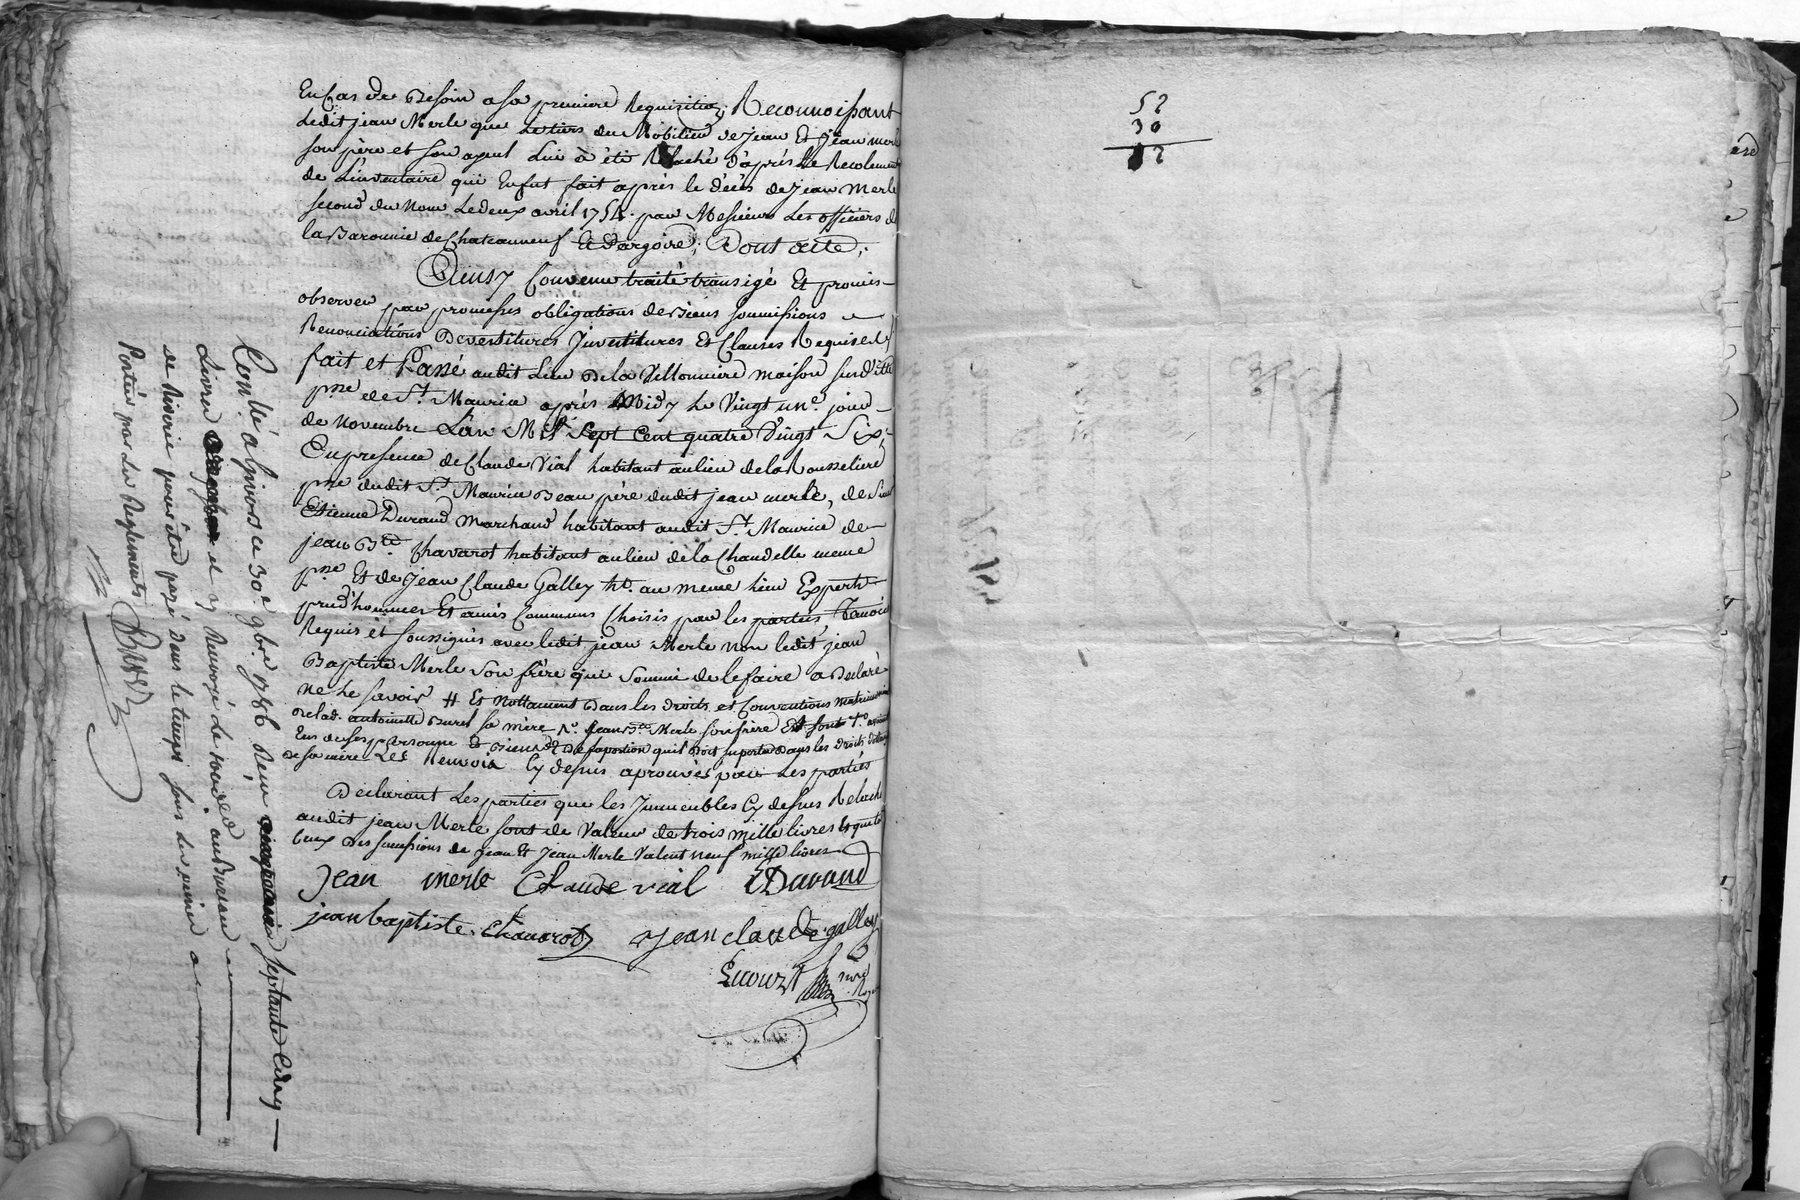 En Cas de Besoin a sa premiere Requisition; Reconnoissant
Ledit jean Merle que Le tiers du Mobilier de Jean Et Jean merle
son père et son ayeul Lui à été Relaché d'après Le Recolement
de L'inventaire qui En fut fait après le décès de Jean Merle
second du Nom Le deux avril 1754. par Messieurs Les officiers de
la Baronnie de Chateauneuf Et Dargoire; Dont acte;
Ainsy Convenu traité transigé Et promis
observer par promesses obligations de Biens soumissions
Renonciations Devestitures Investitures Et Clauses Requises
fait et Passé audit Lieu de la Villonniere maison susditte
psse de St. Maurice après Midy Le Vingt une. jour
de Novembre L'an Mil Sept Cent quatre Vingt Six;
En presence de Claude Vial habitant au lieu de la Rousseliere
psse dudit St. Maurice Beau père dudit jean merle, de Sieur
Etienne Durand Marchand habitant audit St. Maurice de
jean Bte. Chavarot habitant au lieu de la Chandelle meme
psse Et de Jean Claude Galley ht. au meme lieu Experts
prud'hommes Et amis Communs Choisis par les parties, Temoins
Requis et soussignés avec ledit jean Merle non ledit jean
Baptiste Merle Son frère qui Sommé de le faire a Declaré
ne Le Savoir # Et Nottament Dans les Droits et Conventions matrimoniaux
de lad. antoinette Burel sa mère Jean Bte Merle son frère
de sa mère Les Renvoix Cy dessus aprouvés par Les parties
Declarant Les parties que les Immeubles Cy dessus Relachés
audit jean Merle sont de Valeur de trois mille livres Et que
ceux Des successions de Jean Et Jean Merle Valent neuf mille livres
Jean merle Claude vial EDurand
jean baptiste Chavarot jean claude galley
Not.
Royal
Conllé a Givors ce 30e 9bre 1786 Reçu septante Cinq
Livres et y Renvoyé Le bureau
de Riverie pour être payé dans le temps sous les peines
Portées par les Reglements
52
30
12